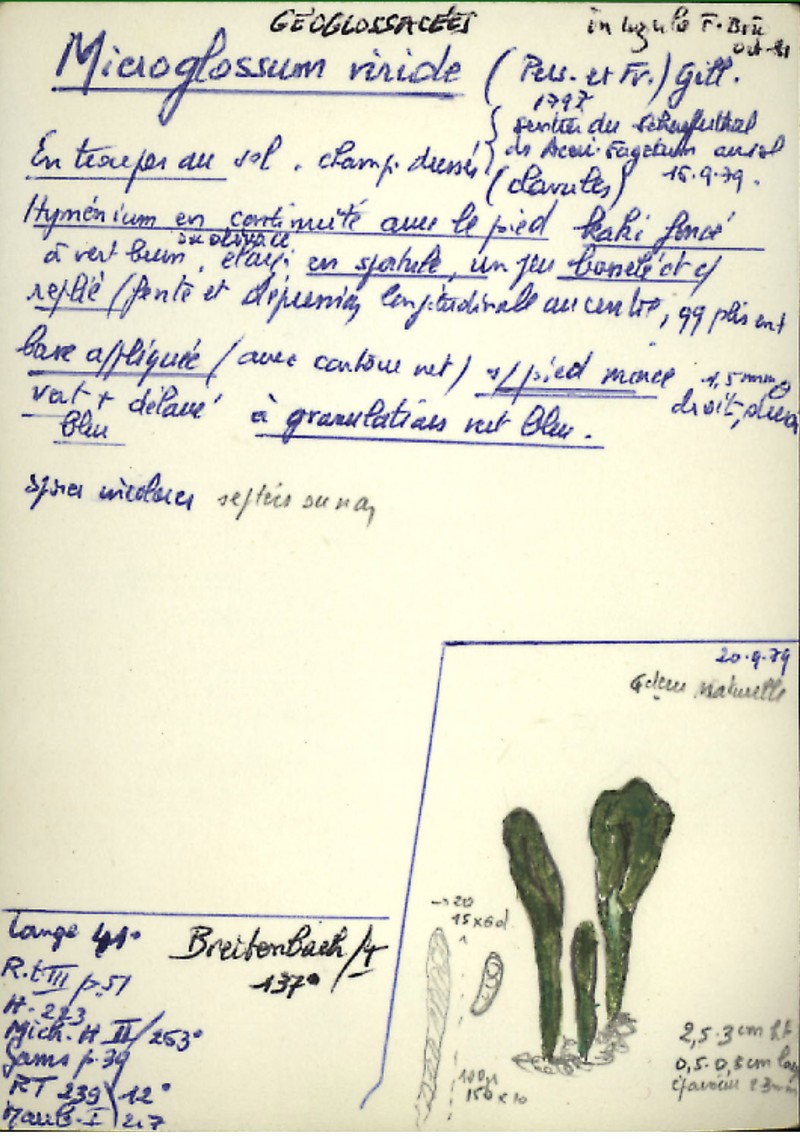 GÉOGLOSSACÉES
in luzula F. Brû
Oct-81
Microglossum viride (Pers. et Fr.) Gill.
1797
sentier du
de Aceri-Fagetum au sol
15.9.79.
En troupes au sol. champ. dressés
(clavulés)
Hyménium en continuité avec le pied kaki foncé
ou olivace
à vert brun, élargi en spatule, un peu bosselé et
replié (fente et dépression longitudinale au centre, qq plis ont
base appliquée (avec contour net) s/pied mince 1,5 mm
vert + délavé à granulations vert bleu. droit,
bleu
spores incolores septées ou non
20.9.79
Gdeur Naturelle
→ 20
15 x 6
100µ
150 x 10
2,5-3 cm ht
0,5-0,8 cm larg
Lange 41°
Breitenbach/I
137°
R.t III p.51
H. 223
Mich. H II/253°
Gams p.39
RT 239 12°
I 217